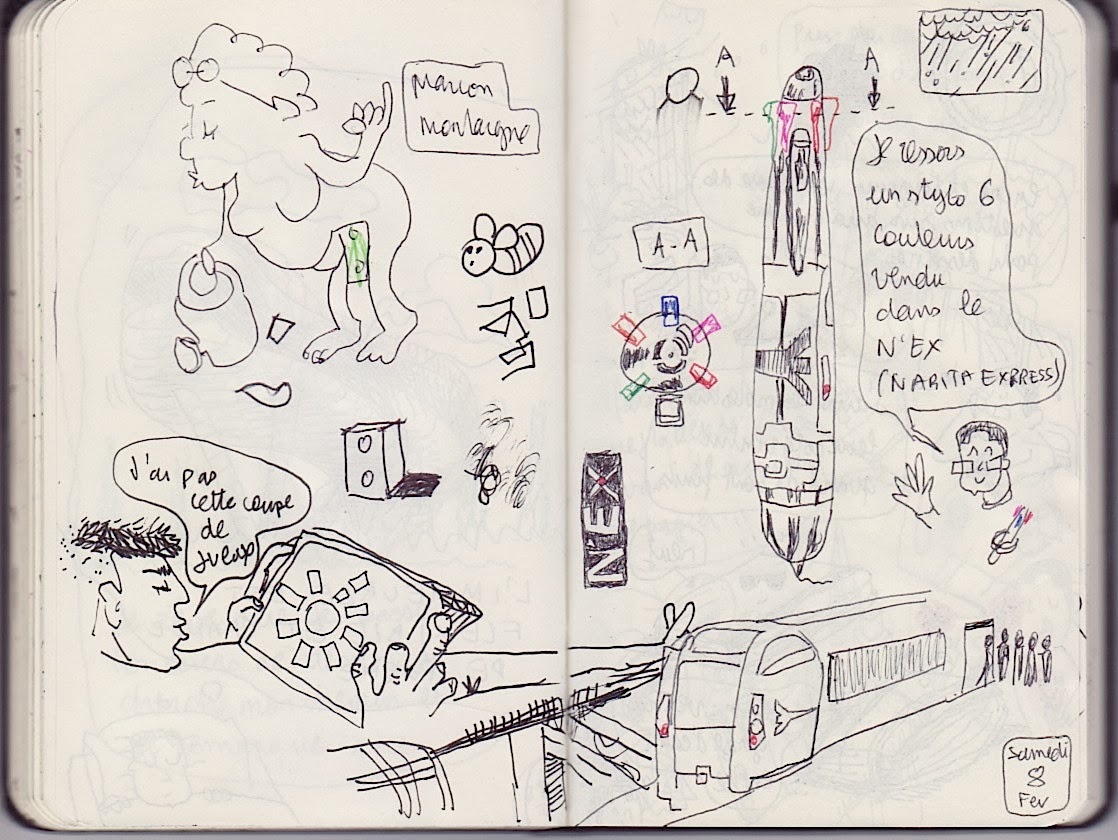 Marion
Montaigne
J'ai pas
cette coupe
de
jveux
A
A
A-A
N'EX
Je ressors
un stylo 6
couleurs
vendu
dans le
N'EX
(NARITA EXPRESS)
Samedi
8
Fev